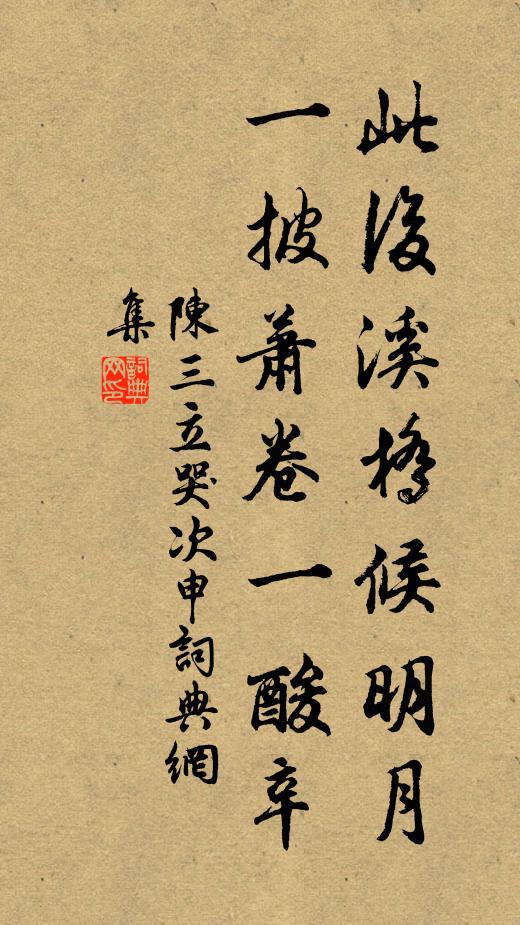 此後溪橋候明月
一披蕭卷一酸辛
陳三立哭次申詞典網
集
詞典網印